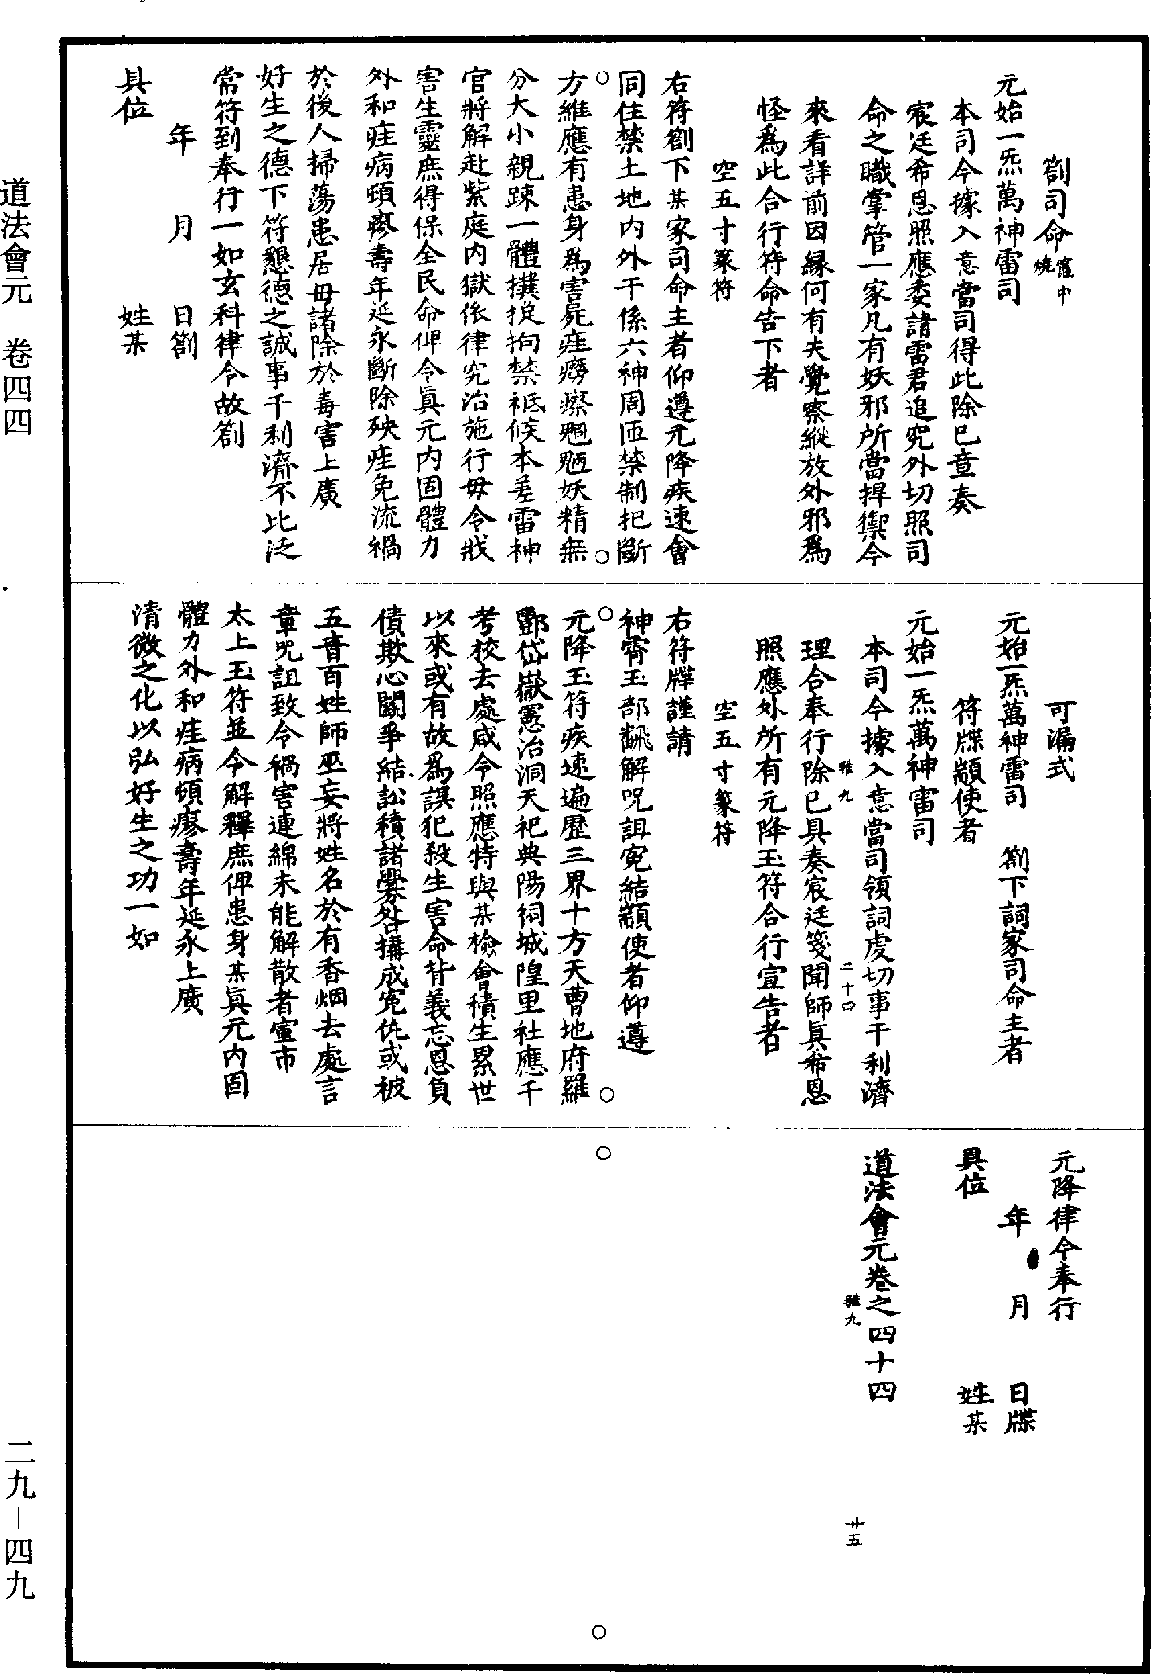 劄司命竈中燒
元始一炁萬神雷司
本司今據入意當司得此除已章奏
宸廷希恩照應委請雷君追究外切照司
命之職掌管一家凡有妖邪所當捍禦今
來看詳前因緣何有失覺察縱放外邪爲
怪爲此合行符命告下者
空五寸篆符
右符劄下某家司命主者仰遵元降疾速會
同住禁土地内外干係六神周匝禁制把斷
方維應有患身爲害屍疰癆瘵魍魎妖精無
分大小親踈一體撲捉拘禁祗候本差雷神
官將解赴紫庭内獄依律究治施行毋令戕
害生靈庶得保全民命俾令眞元内固體力
外和疰病頓瘳壽年延永斷除殃疰免流禍
於後人掃蕩患居毋諸除於毒害上廣
好生之德下符懇德之誠事干利濟不比泛
常符到奉行一如玄科律令故劄
年　月　日劄
具位　姓某
可漏式
元始一炁萬神雷司　劄下詞家司命主者
符牒顓使者
元始一炁萬神雷司
本司今據入意當司領詞虔切事干利濟
理合奉行除已具奏宸廷箋聞師眞希恩
照應外所有元降玉符合行宣告者
空五寸篆符
右符牒謹請
神霄玉部翻解咒詛寃結顓使者仰遵
元降玉符疾速遍歷三界十方天曹地府羅
酆岱嶽憲治洞天祀典陽祠城隍里社應干
考校去處咸令照應特與某檢會積生累世
以來或有故爲誤犯殺生害命背義忘恩負
債欺心鬭爭結訟積諸釁咎搆成寃仇或被
五音百姓師巫妄將姓名於有香烟去處言
章咒詛致令禍害連綿未能解散者蜜市
太上玉符並令解釋庶俾患身某眞元内固
體力外和疰病頓瘳壽年延永上廣
清微之化以弘好生之功一如
元降律令奉行
年　月　日牒
具位　姓某
道法會元卷之四十四
雅九
二十四
雅九
廿五
道法會元　卷四四
二九－四九